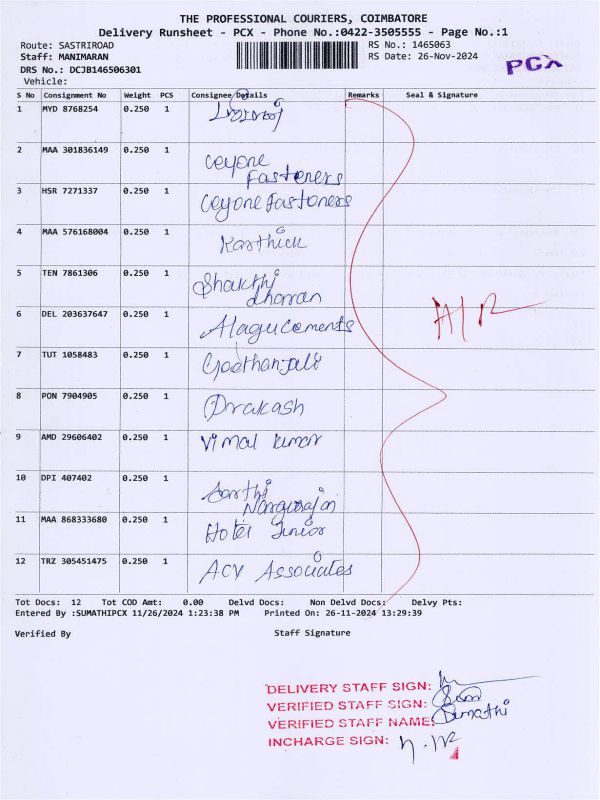 THE PROFESSIONAL COURIERS, COIMBATORE
Delivery Runsheet - PCX - Phone No.:0422-3505555 - Page No.:1
Route: SASTRIROAD RS No.: 1465063
Staff: MANIMARAN RS Date: 26-Nov-2024
PCX
DRS No.: DCJB146506301
Vehicle:
S No Consignment No Weight PCS Consignee Details Remarks Seal & Signature
1 MYD 8768254 0.250 1
2 MAA 301836149 0.250 1 Ceyone
Fasteners
3 HSR 7271337 0.250 1 Ceyone Fasteners
4 MAA 576168004 0.250 1 Karthick
5 TEN 7861306 0.250 1 Shakthi
dharan
6 DEL 203637647 0.250 1 Alagu Cements
7 TUT 1058483 0.250 1 Geethanjali
8 PON 7904905 0.250 1 Prakash
9 AMD 29606402 0.250 1 Vimal kumar
10 DPI 407402 0.250 1 Aarthi
11 MAA 868333680 0.250 1 Hotel Junior
12 TRZ 305451475 0.250 1 ACV Associates
Tot Docs: 12 Tot COD Amt: 0.00 Delvd Docs: Non Delvd Docs: Delvy Pts:
Entered By :SUMATHIPCX 11/26/2024 1:23:38 PM Printed On: 26-11-2024 13:29:39
Verified By Staff Signature
DELIVERY STAFF SIGN:
VERIFIED STAFF SIGN:
VERIFIED STAFF NAME: Sumathi
INCHARGE SIGN: